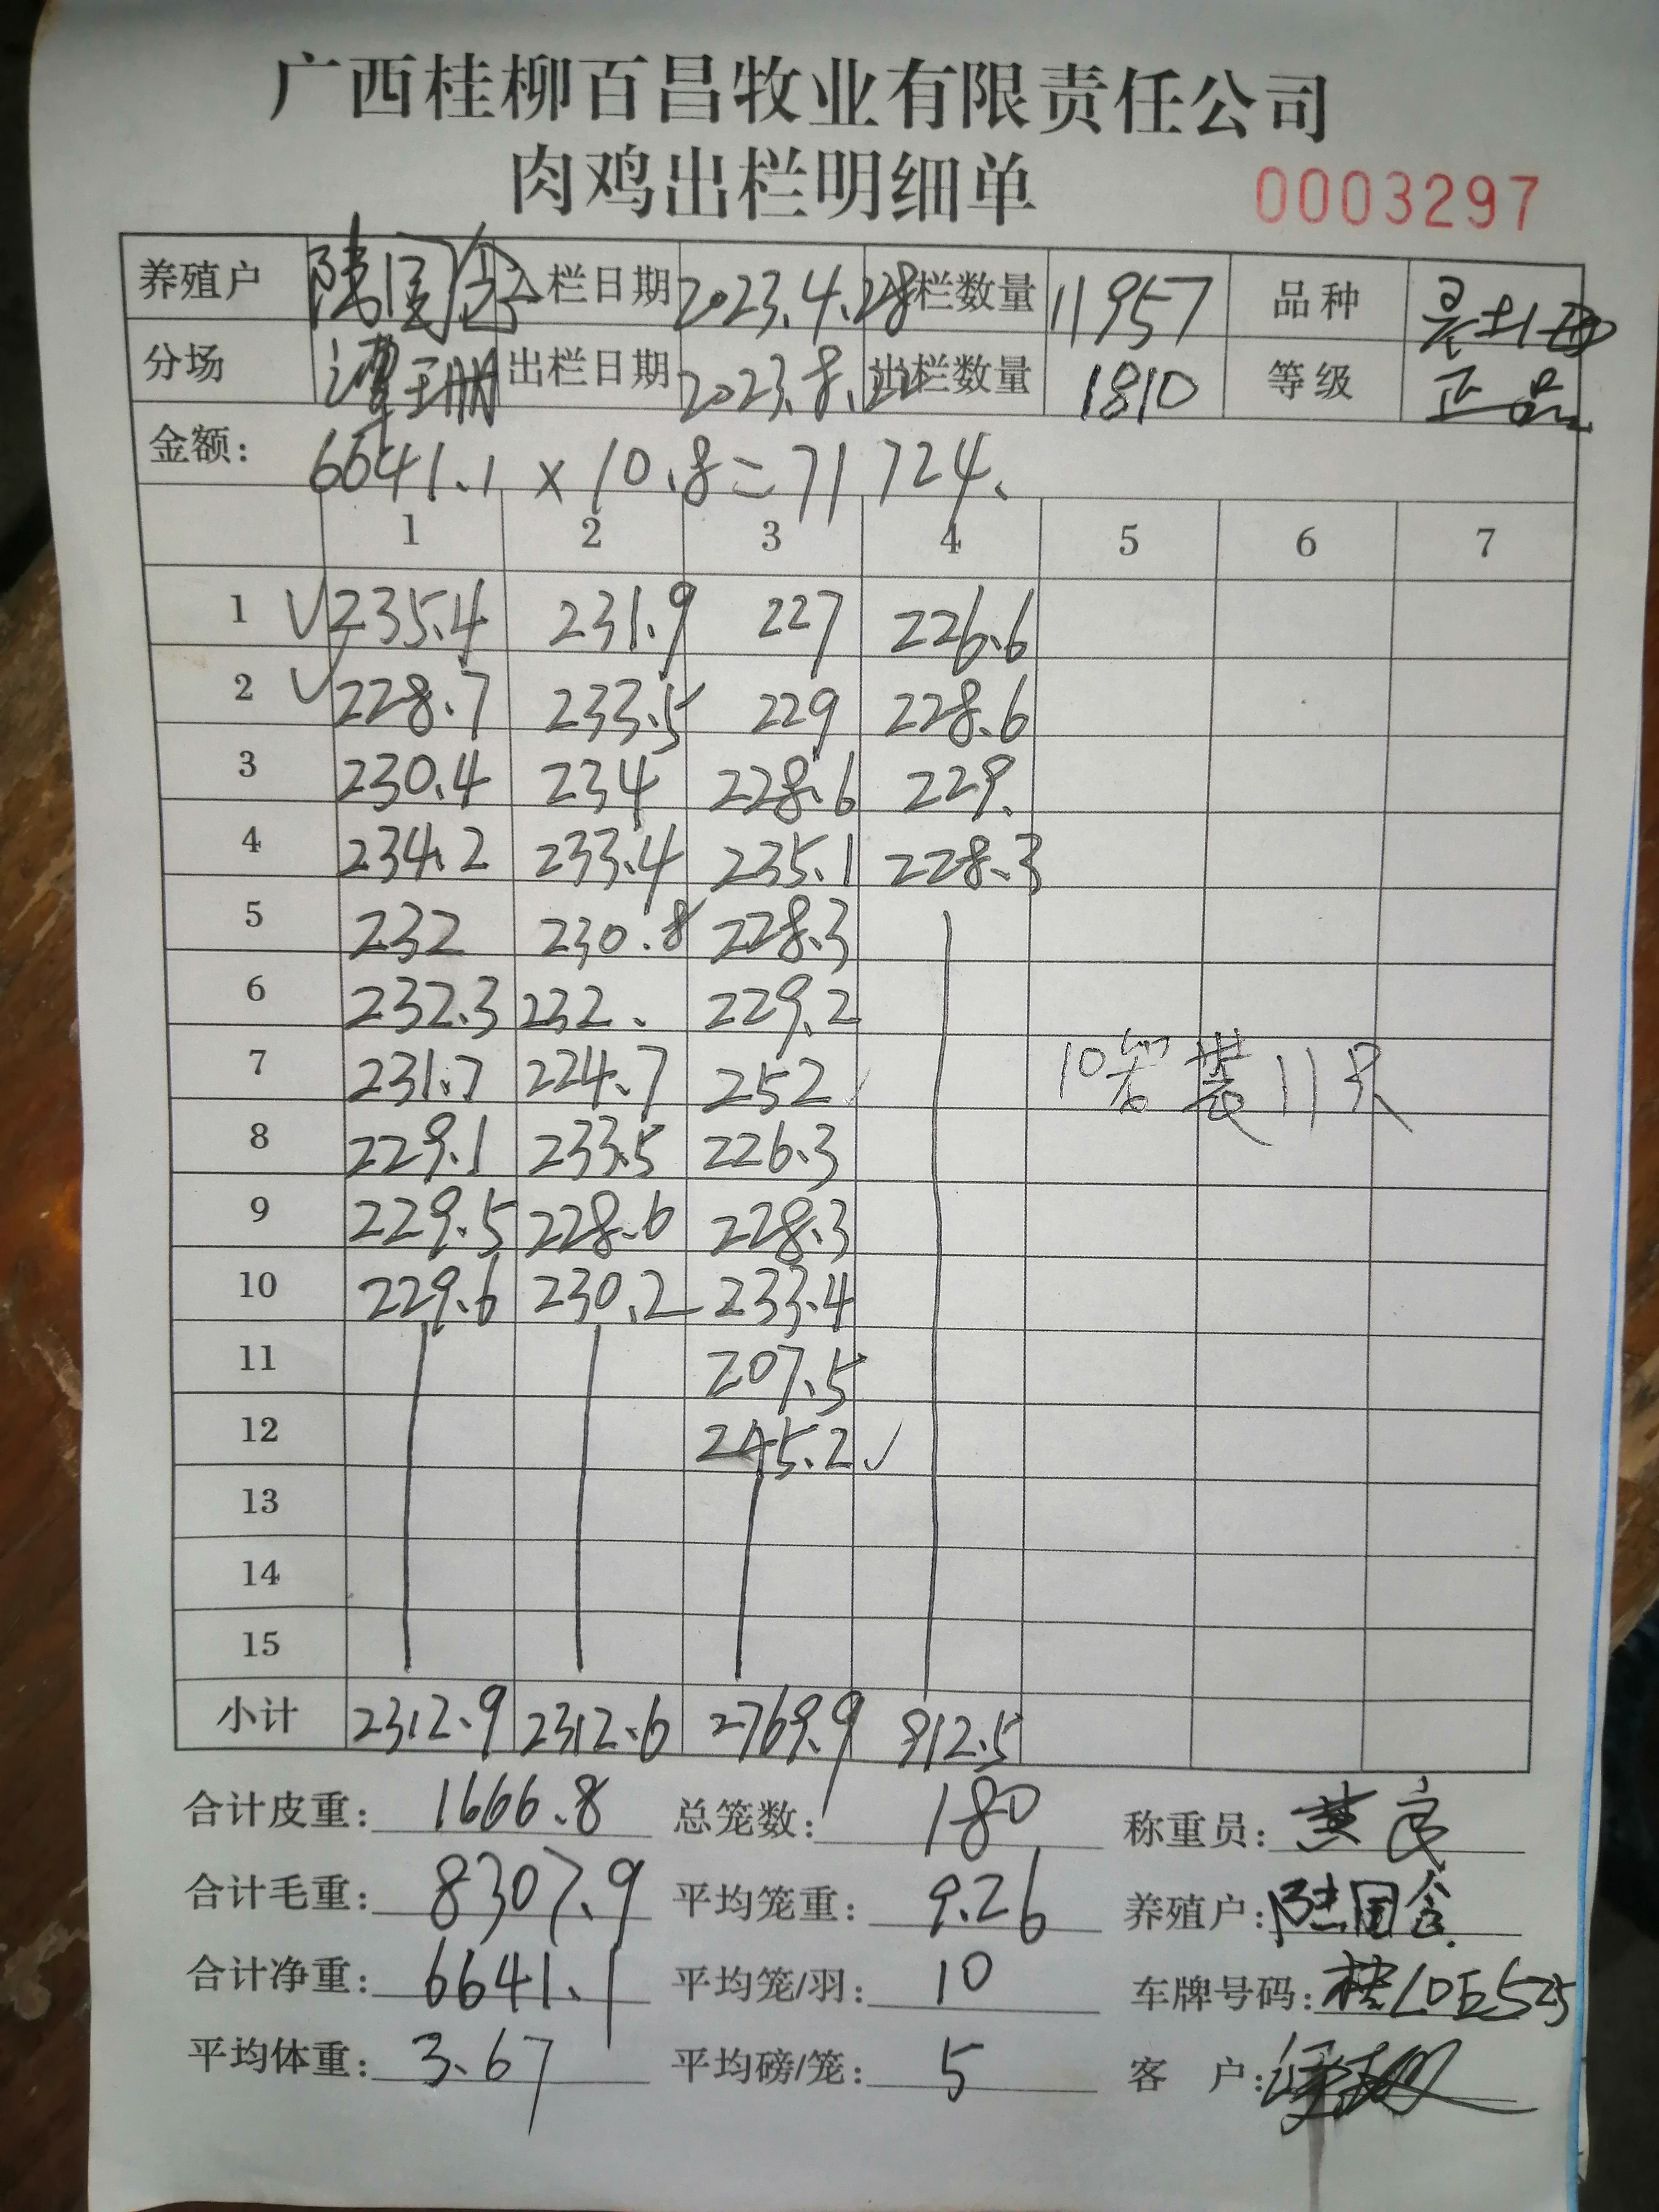 广西桂柳百昌牧业有限责任公司
肉鸡出栏明细单 0003297
养殖户 陆国含 入栏日期 2023.4.28 栏数量 11957 品种
分场 谭王册 出栏日期 2023.8.22 出栏数量 1810 等级 正品
金额: 6641.1 × 10.8=71724.
1 2 3 4 5 6 7
1 √235.4 231.9 227 226.6
2 √228.7 233.5 229 228.6
3 230.4 234 228.6 229.
4 234.2 233.4 235.1 228.3
5 232 230.8 228.3
6 232.3 232. 229.2
7 231.7 224.7 252 10笼装11只
8 229.1 233.5 226.3
9 229.5 228.6 228.3
10 229.6 230.2 233.4
11 207.5
12 245.2√
13
14
15
小计 2312.9 2312.6 2769.9 912.5
合计皮重: 1666.8 总笼数: 180 称重员: 黄良
合计毛重: 8307.9 平均笼重: 9.26 养殖户: 陆国含
合计净重: 6641.1 平均笼/羽: 10 车牌号码: 桂L0E525
平均体重: 3.67 平均磅/笼: 5 客 户: